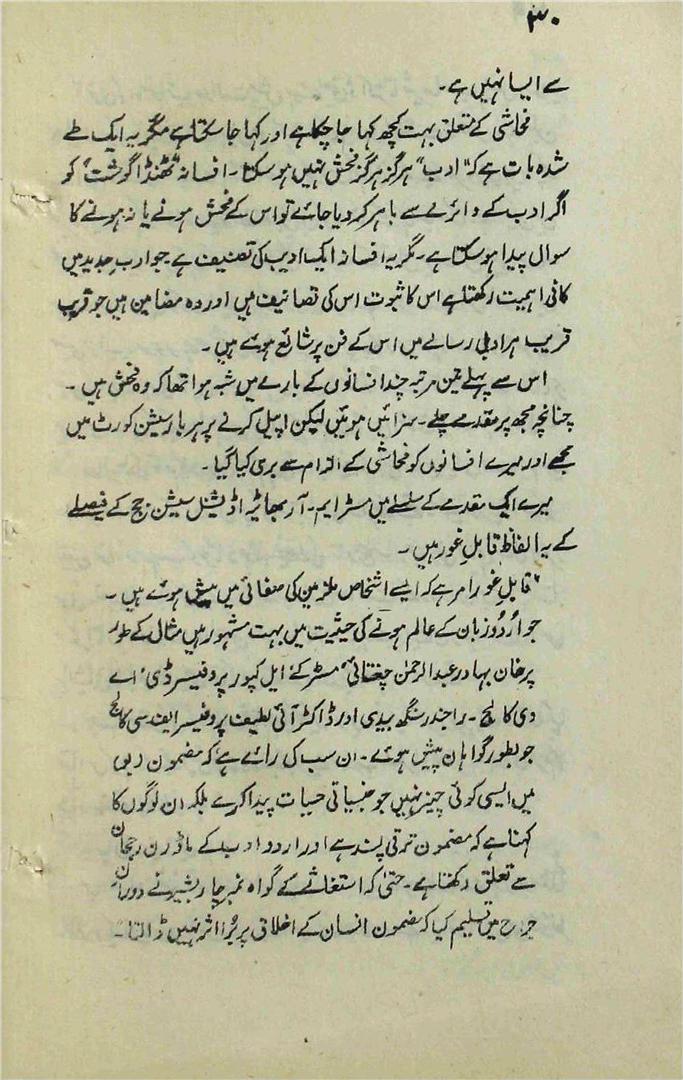 ۳۰
سے ایسا نہیں ہے۔
فحاشی کے متعلق بہت کچھ کہا جا چکا ہے اور کہا جا سکتا ہے مگر یہ ایک طے
شدہ بات ہے کہ "ادب" ہرگز ہرگز فحش نہیں ہو سکتا۔ افسانہ "ٹھنڈا گوشت" کو
اگر ادب کے دائرے سے باہر کر دیا جائے تو اس کے فحش ہونے یا نہ ہونے کا
سوال پیدا ہو سکتا ہے۔ مگر یہ افسانہ ایک ادیب کی تصنیف ہے۔ جو ادب جدید میں
کافی اہمیت رکھتا ہے اس کا ثبوت اس کی تصانیف ہیں اور وہ مضامین ہیں جو قریب
قریب ہر ادبی رسالے میں اس کے فن پر شائع ہوئے ہیں۔
اس سے پہلے تین مرتبہ چند افسانوں کے بارے میں شبہ ہوا تھا کہ وہ فحش ہیں۔
چنانچہ مجھ پر مقدمے چلے۔ سزائیں ہوئیں لیکن اپیل کرنے پر ہر بار سیشن کورٹ میں
مجھے اور میرے افسانوں کو فحاشی کے الزام سے بری کیا گیا۔
میرے ایک مقدمے کے سلسلے میں مسٹر ایم۔ آر بھاٹیہ اڈیشنل سیشن جج کے فیصلے
کے یہ الفاظ قابلِ غور ہیں۔
"قابلِ غور امر ہے کہ ایسے اشخاص ملزمین کی صفائی میں پیش ہوئے ہیں۔
جو اُردو زبان کے عالم ہونے کی حیثیت میں بہت مشہور ہیں مثال کے طور
پر خان بہادر عبدالرحمٰن چغتائی، مسٹر کے ایل کپور پروفیسر ڈی، اے
وی کالج۔ راجندر سنگھ بیدی اور ڈاکٹر آئی لطیف پروفیسر ایف سی کالج
جو بطور گواہان پیش ہوئے۔ ان سب کی رائے ہے کہ مضمون "بو"
میں ایسی کوئی چیز نہیں جو جنسیاتی حسیات پیدا کرے بلکہ ان لوگوں کا
کہنا ہے کہ مضمون ترقی پسند ہے اور اردو ادب کے ماڈرن رجحان
سے تعلق رکھتا ہے۔ حتیٰ کہ استغاثے کے گواہ نمبر چار بشیر نے دوران
جرح میں تسلیم کیا کہ مضمون انسان کے اخلاق پر بُرا اثر نہیں ڈالتا۔